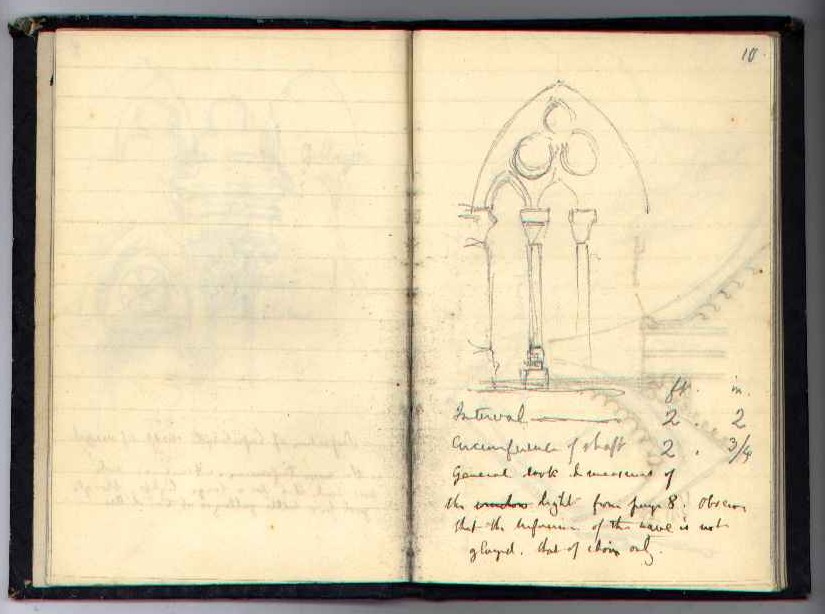 10
ft. in.
Interval 2 . 2
Circumference of shaft 2 . 3/4
General look & measures of
the window light from page 8. Observe
that the triforium of the nave is not
glazed. that of choir only.